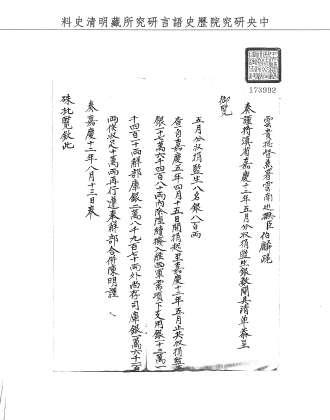 中央研究院歷史語言研究所藏明清史料
173992
雲貴總督兼署雲南巡撫臣伯麟跪
奏謹將滇省嘉慶十一年五月分收捐監生銀數開具清單恭呈
御覽
五月分收捐監生八名銀八百兩
查自嘉慶五年四月十五日開捐起至嘉慶十一年五月止共收捐監
銀十七萬六千四百八十兩內除陸續撥入經西軍需項下支用銀十三萬一
千四百二十兩解部庫銀二萬八千九百七十兩外尚存司庫銀一萬六千
兩俟收足十萬兩再行遵奏解部合併陳明謹
奏嘉慶十一年八月十三日奉
硃批覽欽此